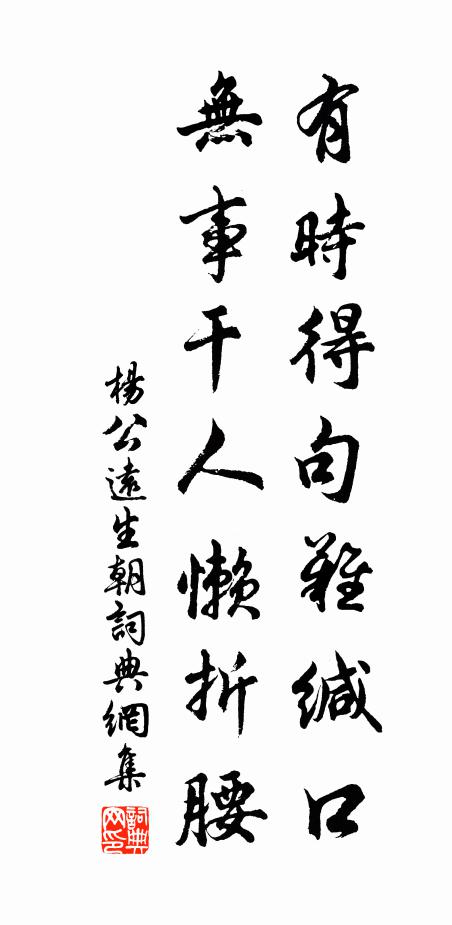 有時得句難緘口
無事干人懶折腰
楊公遠生朝詞典網集
詞典
网印